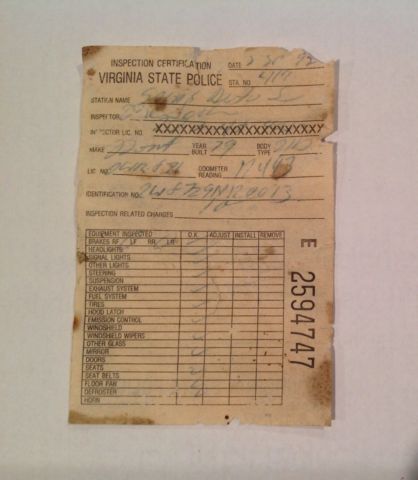 INSPECTION CERTIFICATION DATE
VIRGINIA STATE POLICE STA. NO. 417
STATION NAME
INSPECTOR
INSPECTOR LIC. NO. XXXXXXXXXXXXXXXXXXXXXXX
MAKE YEAR BUILT 79 BODY TYPE
LIC. NO. ODOMETER READING
IDENTIFICATION NO.
INSPECTION RELATED CHARGES
EQUIPMENT INSPECTED O.K. ADJUST INSTALL REMOVE
BRAKES RF LF RR LR
HEADLIGHTS
SIGNAL LIGHTS
OTHER LIGHTS
STEERING
SUSPENSION
EXHAUST SYSTEM
FUEL SYSTEM
TIRES
HOOD LATCH
EMISSION CONTROL
WINDSHIELD
WINDSHIELD WIPERS
OTHER GLASS
MIRROR
DOORS
SEATS
SEAT BELTS
FLOOR PAN
DEFROSTER
HORN
E 2594747